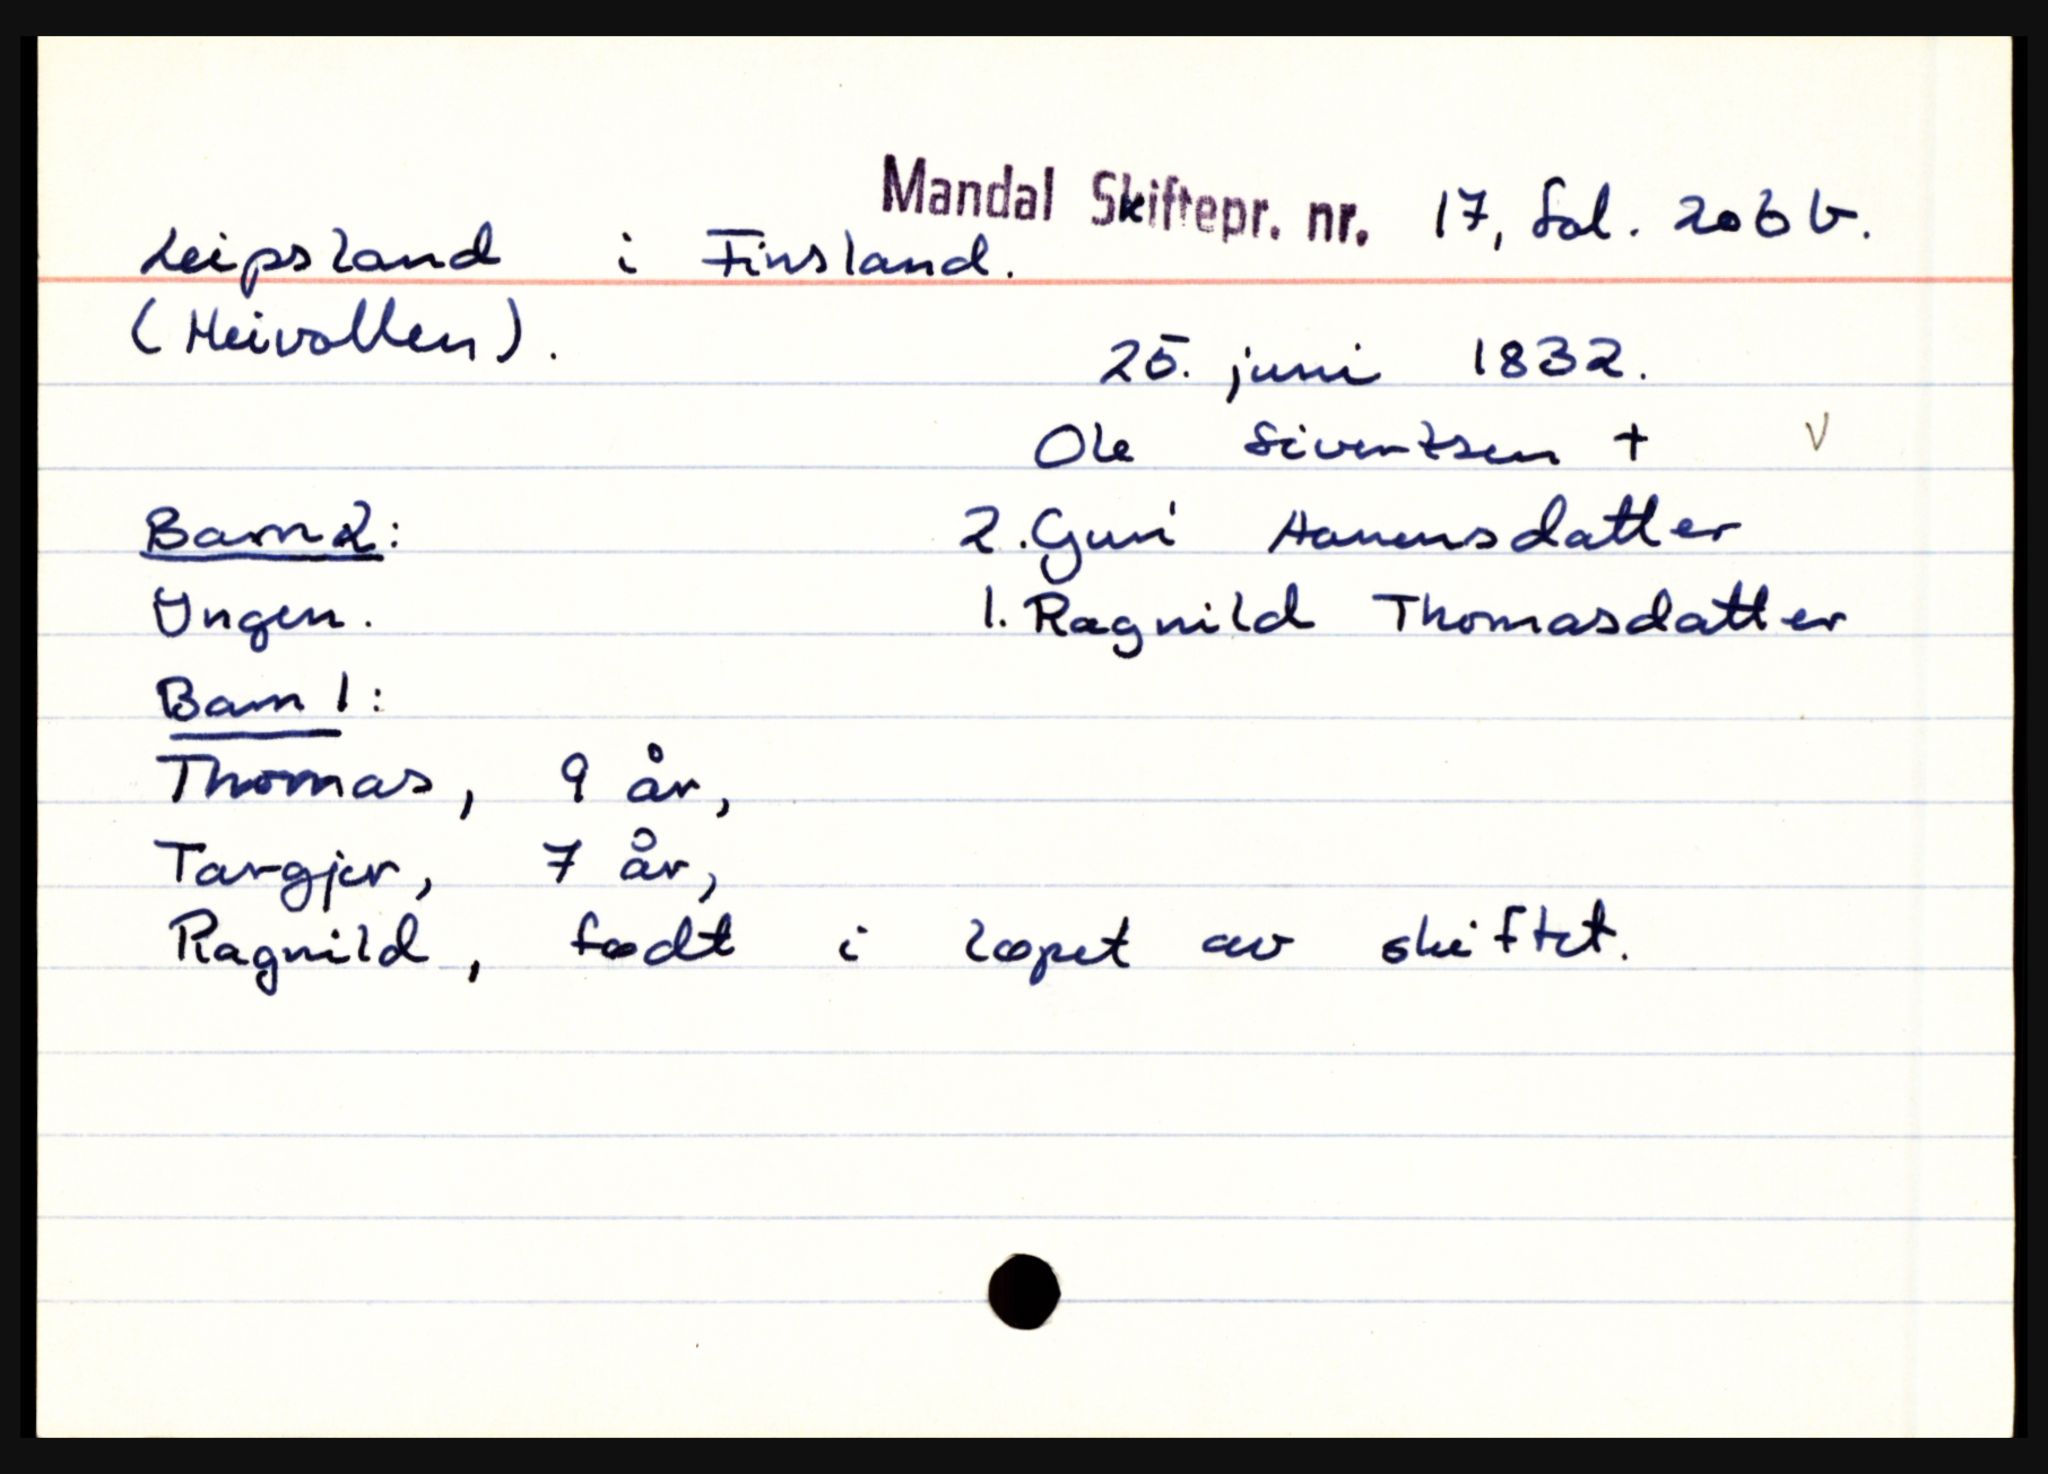 Mandal Skiftepr. nr. 17, fol. 206 b.
Leipsland i Finsland.
(Heivollen).
25. juni 1832.
Ole Sivertsen + V
Barn 2: 2. Guri Hansensdatter
Ingen. 1. Ragnild Thomasdatter
Barn 1:
Thomas, 9 år,
Targjer, 7 år,
Ragnild, født i løpet av skiftet.